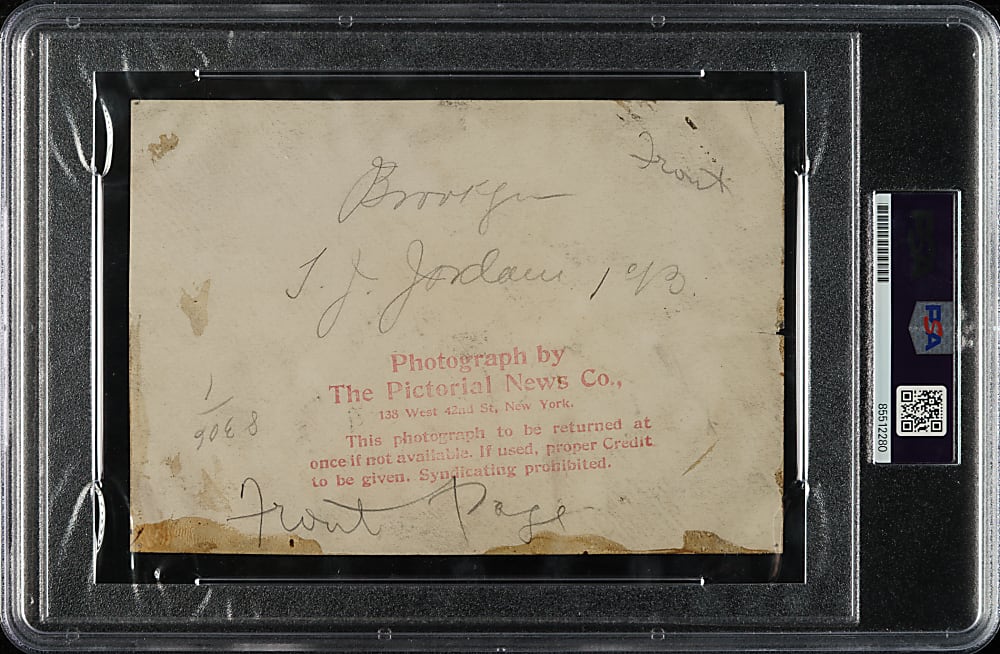 Front
Brooklyn
T. J. Jordan 1 1B
Photograph by
The Pictorial News Co.,
138 West 42nd St, New York.
This photograph to be returned at
once if not available. If used, proper Credit
to be given. Syndicating prohibited.
Front Page
PSA
85512280